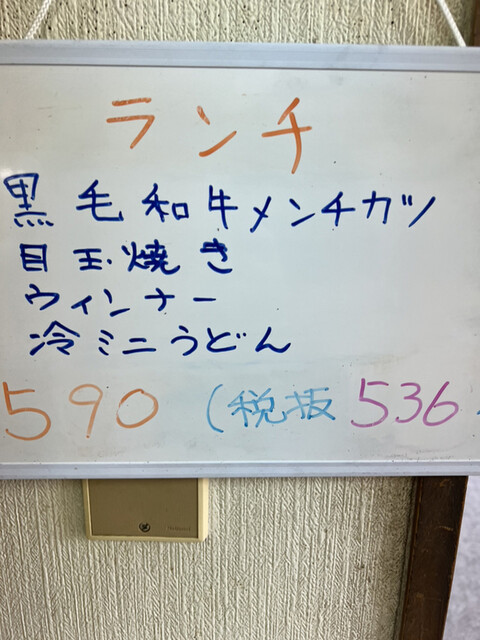 ランチ
黒毛和牛メンチカツ
目玉焼き
ウィンナー
冷ミニうどん
590 (税抜 536